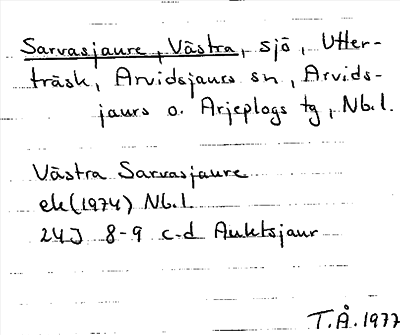 Sarvasjaure, Västra, sjö, Utter-
träsk, Arvidsjaurs sn, Arvids-
jaurs o. Arjeplogs tg, Nb.l.
Västra Sarvasjaure
ek (1974) Nb.l
24J 8-9 c-d Auktsjaur
T.Å. 1977